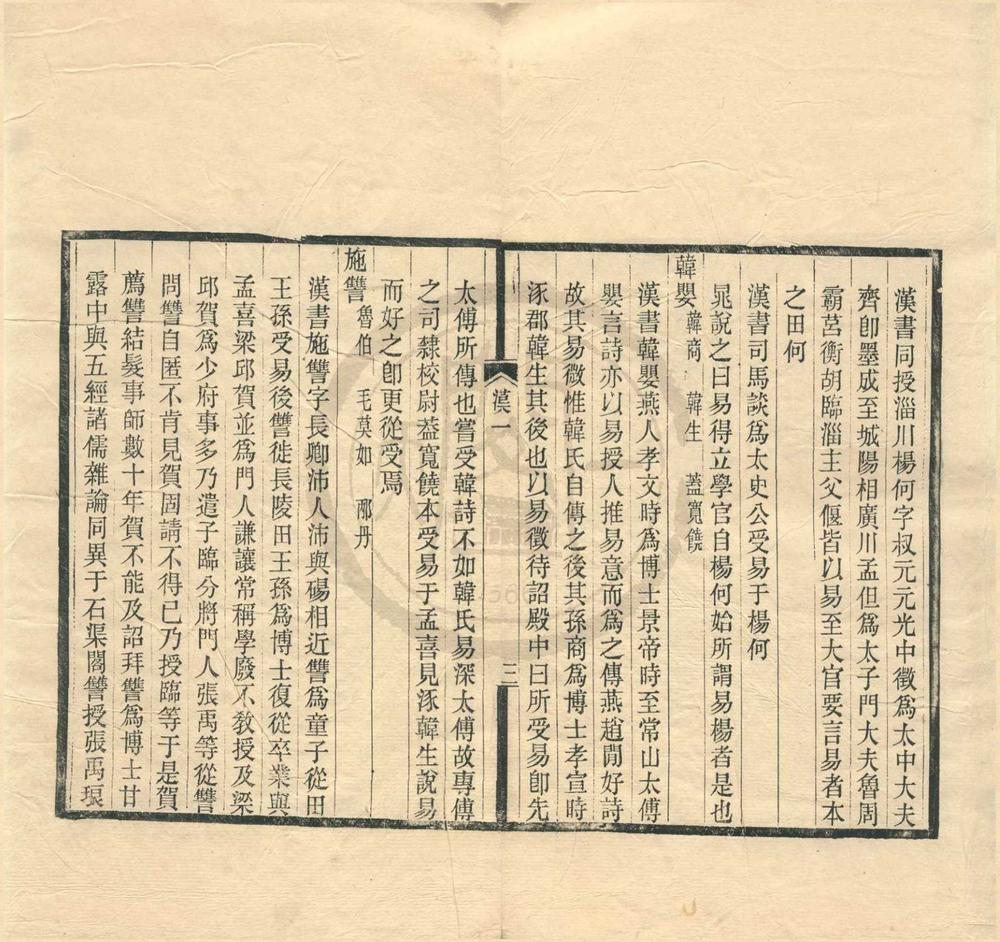 漢書同授淄川楊何字叔元元光中徵爲太中大夫
齊卽墨成至城陽相廣川孟但爲太子門大夫魯周
霸莒衡胡臨淄主父偃皆以易至大官要言易者本
之田何
漢書司馬談爲太史公受易于楊何
晁說之曰易得立學官自楊何始所謂易楊者是也
韓嬰 韓商 韓生 蓋寬饒
漢書韓嬰燕人孝文時爲博士景帝時至常山太傅
嬰言詩亦以易授人推易意而爲之傳燕趙閒好詩
故其易微惟韓氏自傳之後其孫商爲博士孝宣時
涿郡韓生其後也以易徵待詔殿中曰所受易卽先
漢一
三
太傅所傳也嘗受韓詩不如韓氏易深太傅故專傳
之司隸校尉葢寬饒本受易于孟喜見涿韓生說易
而好之卽更從受焉
施讐 魯伯 毛莫如 邴丹
漢書施讐字長卿沛人沛與碭相近讐爲童子從田
王孫受易後讐徙長陵田王孫爲博士復從卒業與
孟喜梁邱賀並爲門人謙讓常稱學廢不敎授及梁
邱賀爲少府事多乃遣子臨分將門人張禹等從讐
問讐自匿不肯見賀固請不得已乃授臨等于是賀
薦讐結髮事師數十年賀不能及詔拜讐爲博士甘
露中與五經諸儒雜論同異于石渠閣讐授張禹琅